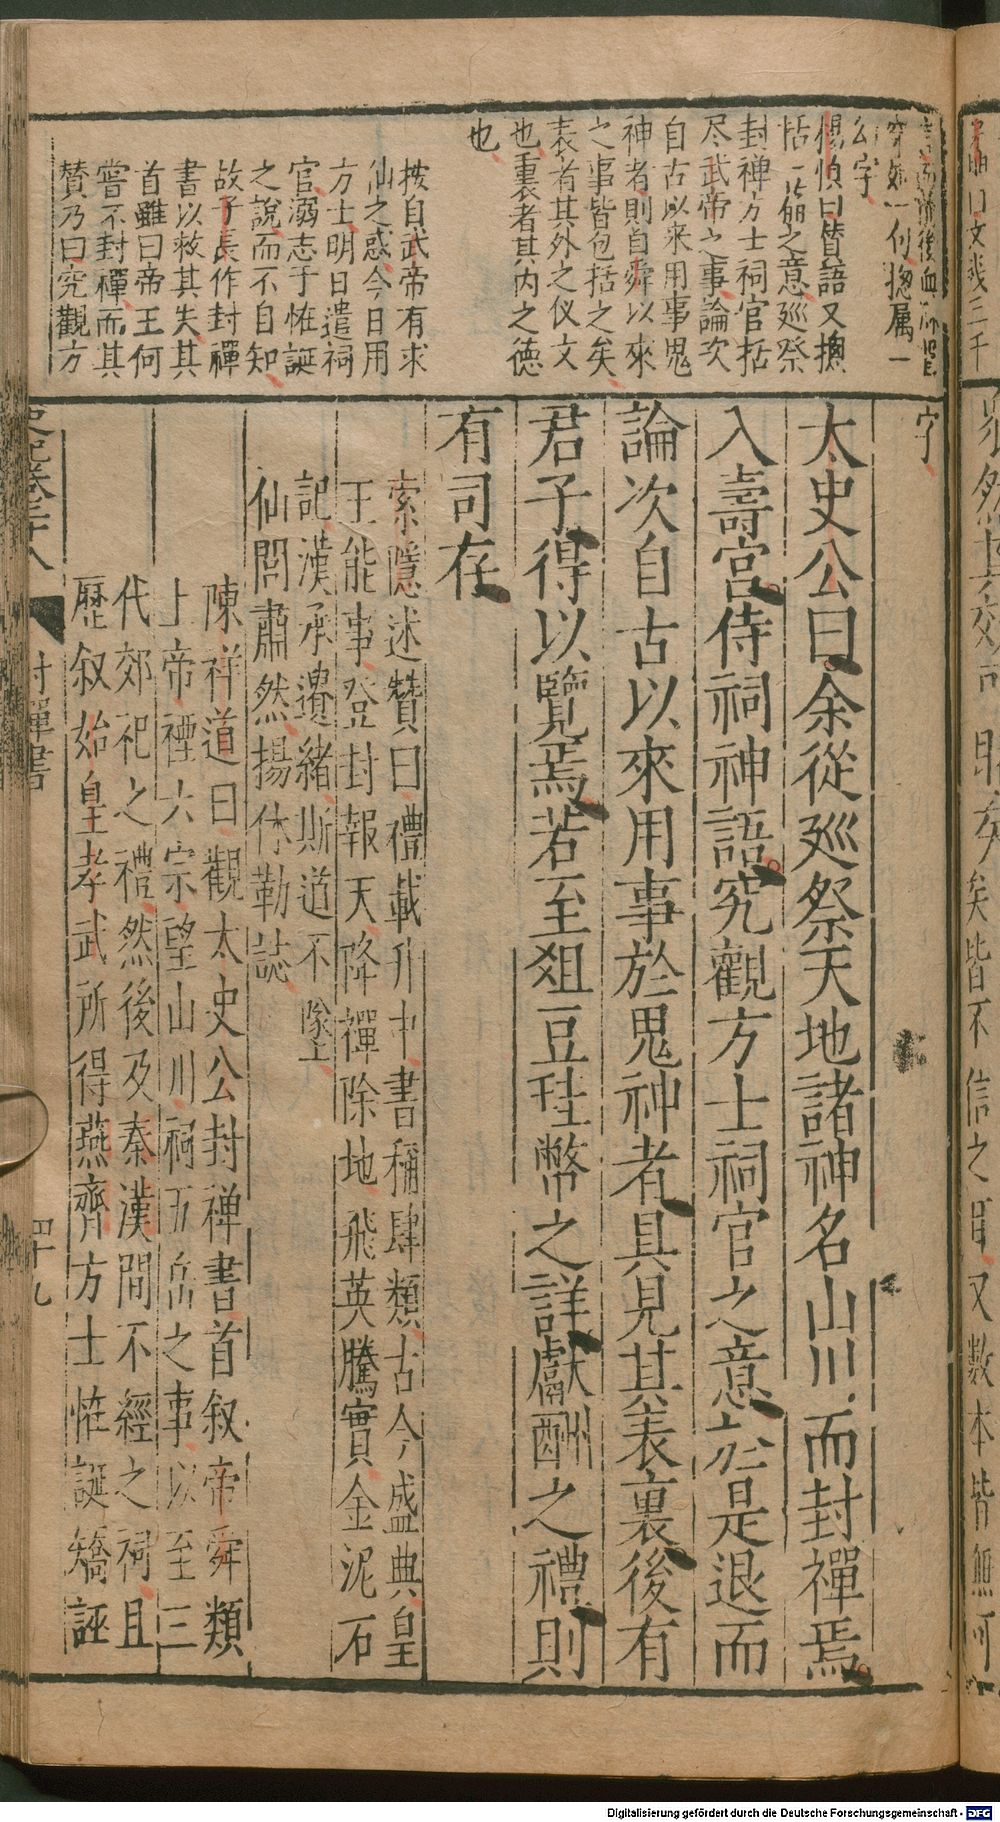 公字
楊慎曰贊語又揔
括一篇之意廵祭
封禅方士祠官括
尽武帝之事論次
自古以来用事鬼
神者則自舜以來
之事皆包括之矣
表者其外之仪文
也裏者其内之德
也
按自武帝有求
仙之惑今日用
方士明日遣祠
官溺志于恠誕
之說而不自知
故子長作封禪
書以救其失其
首雖曰帝王何
嘗不封禪而其
贊乃曰究觀方
字
太史公曰余從廵祭天地諸神名山川而封禪焉
入壽宮侍祠神語究觀方士祠官之意於是退而
論次自古以來用事於鬼神者具見其表裏後有
君子得以覽焉若至俎豆珪幣之詳獻酬之禮則
有司存
索隱述贊曰禮載升中書稱肆類古今盛典皇
王能事登封報天降禪除地飛英騰實金泥石
記漢承遺緒斯道不墜
仙閭肅然揚休勒誌
陳祥道曰觀太史公封禅書首叙帝舜類
上帝禋六宗望山川祠五岳之事以至三
代郊祀之禮然後及秦漢間不經之祠且
歷叙始皇孝武所得燕齊方士恠誕矯誣
史記卷二十八 封禪書 四十九